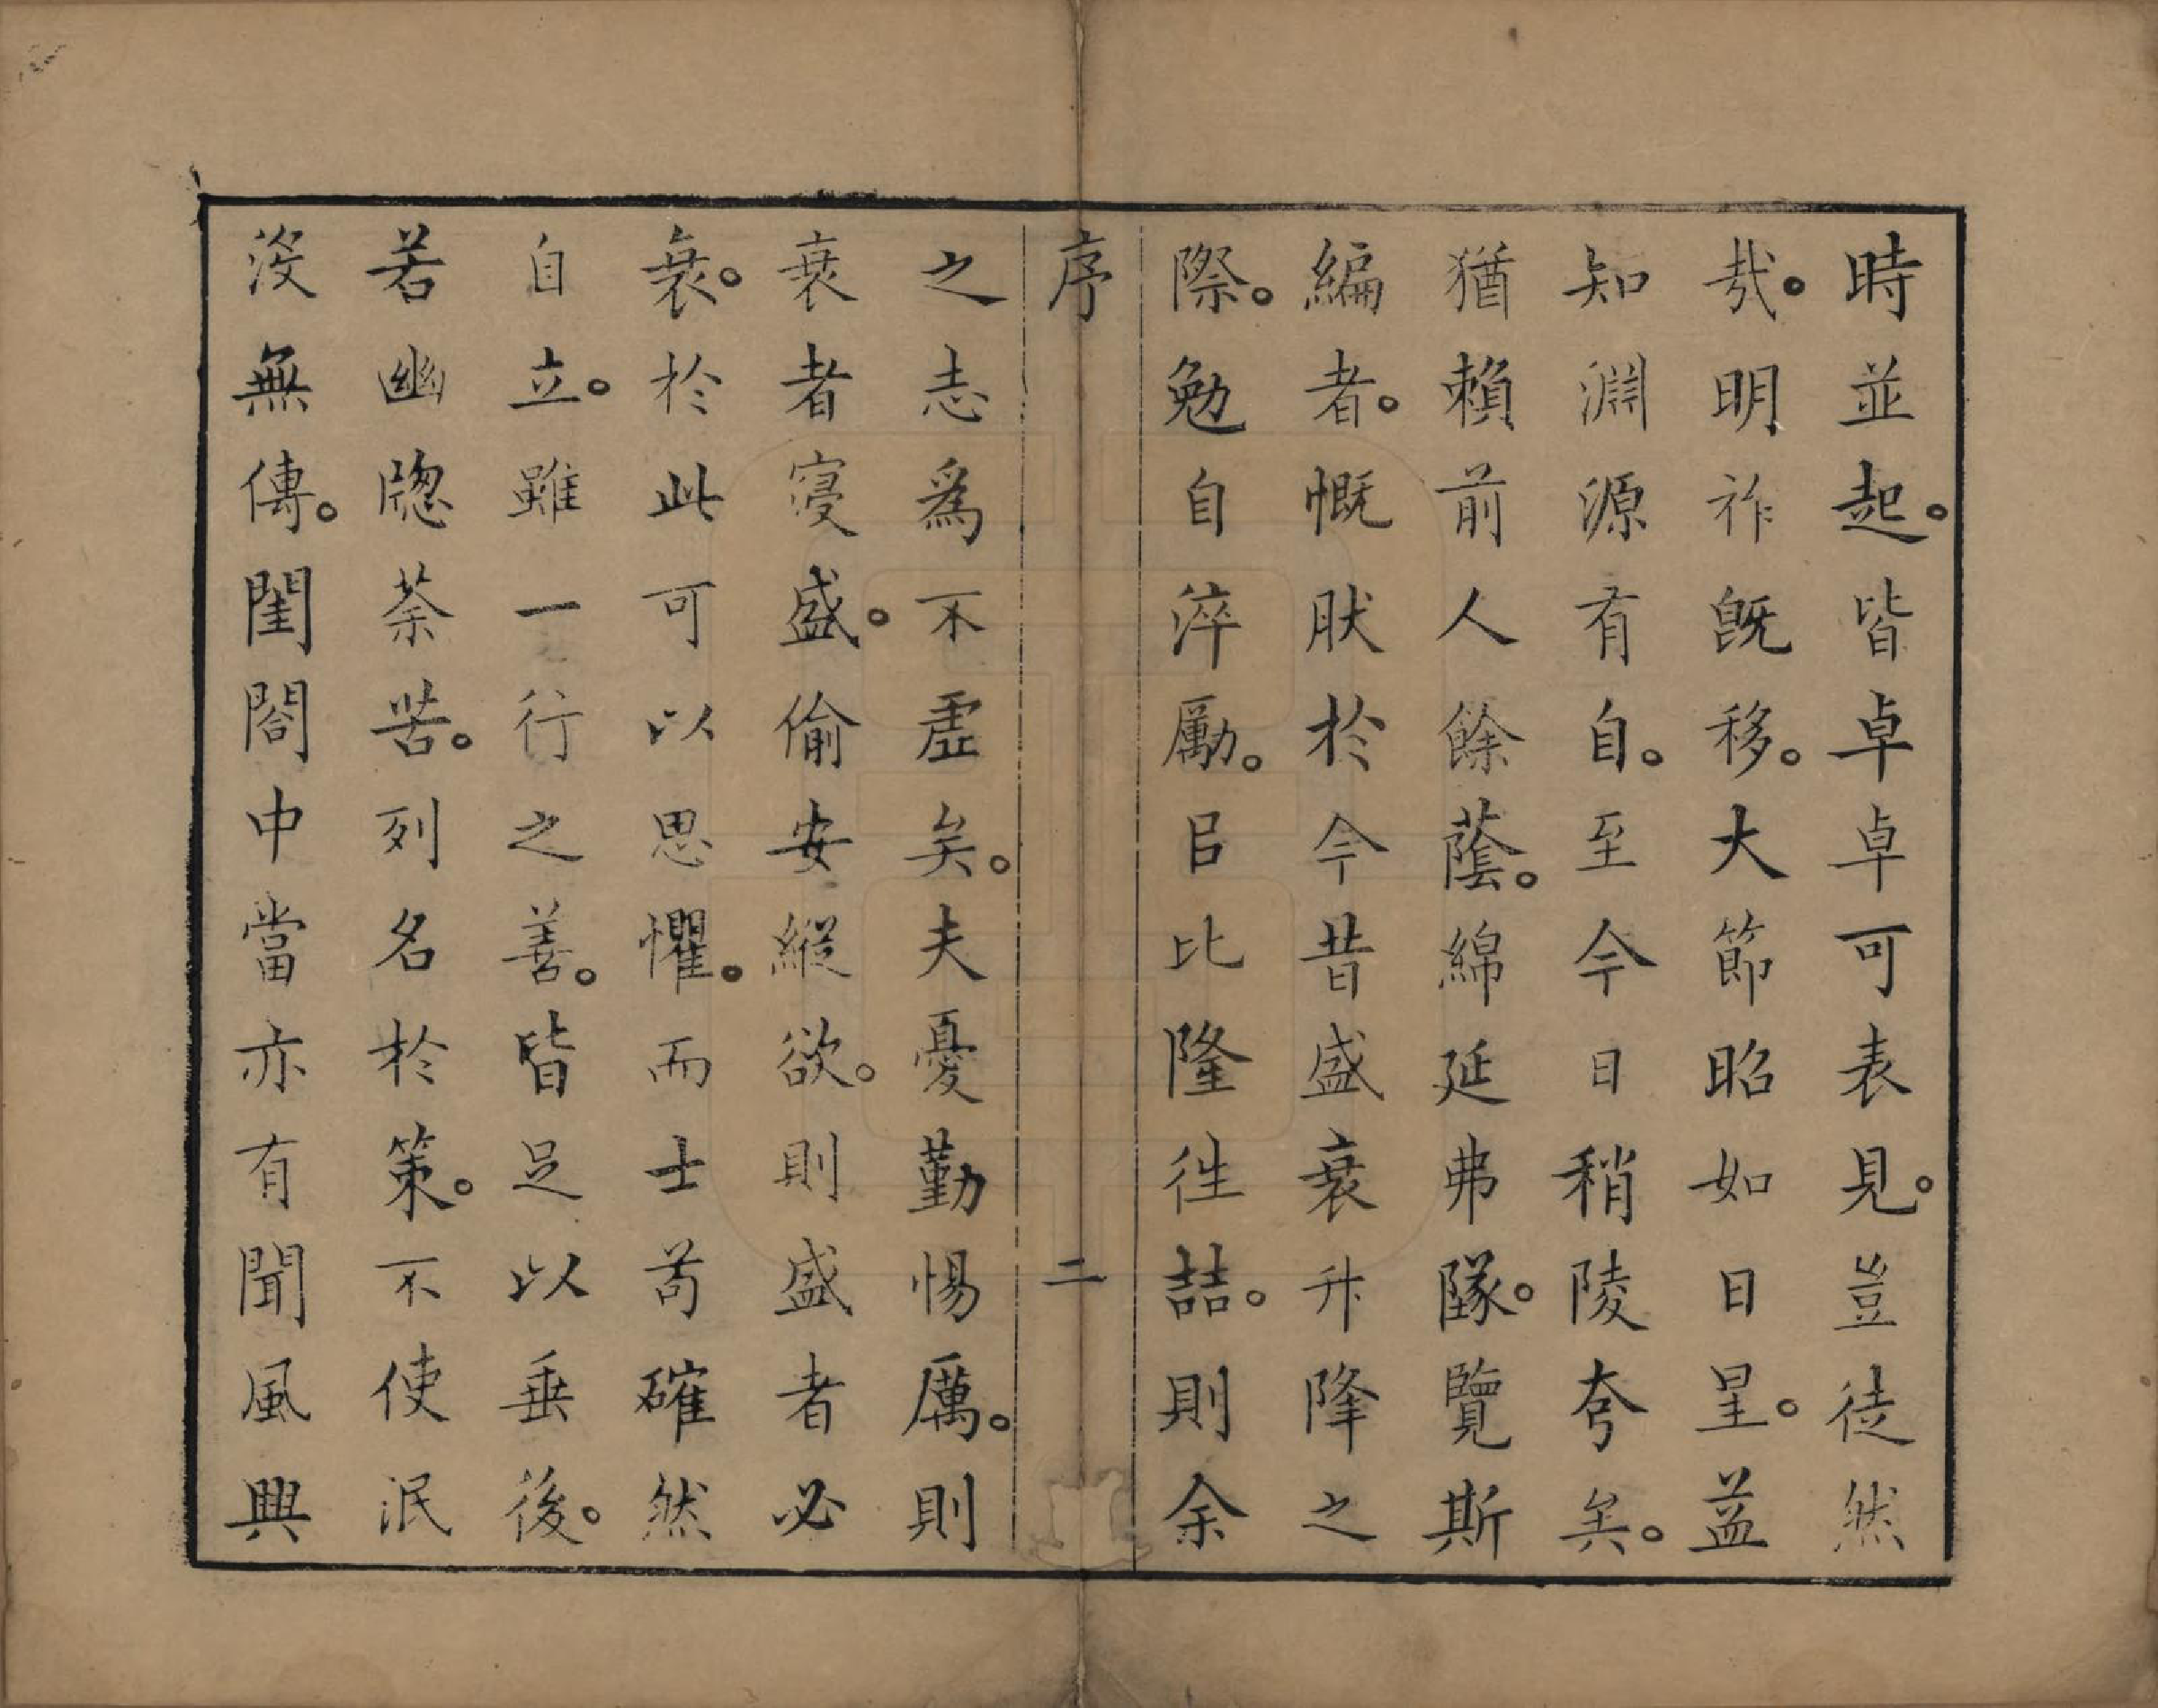 時並起。皆卓卓可表見。豈徒然
哉。明祚旣移。大節昭如日星。益
知淵源有自。至今日稍陵夸矣。
猶賴前人餘蔭。綿延弗隊。覽斯
編者。慨肰於今昔盛衰升降之
際。勉自淬勵。㠯比隆徃喆。則余
序 二
之志爲不虛矣。夫憂勤惕厲。則
衰者寖盛。偷安縱欲。則盛者必
衰。於此可以思懼。而士苟確然
自立。雖一行之善。皆足以垂後。
若幽牕荼苦。列名於策。不使泯
沒無傳。閨閤中當亦有聞風興